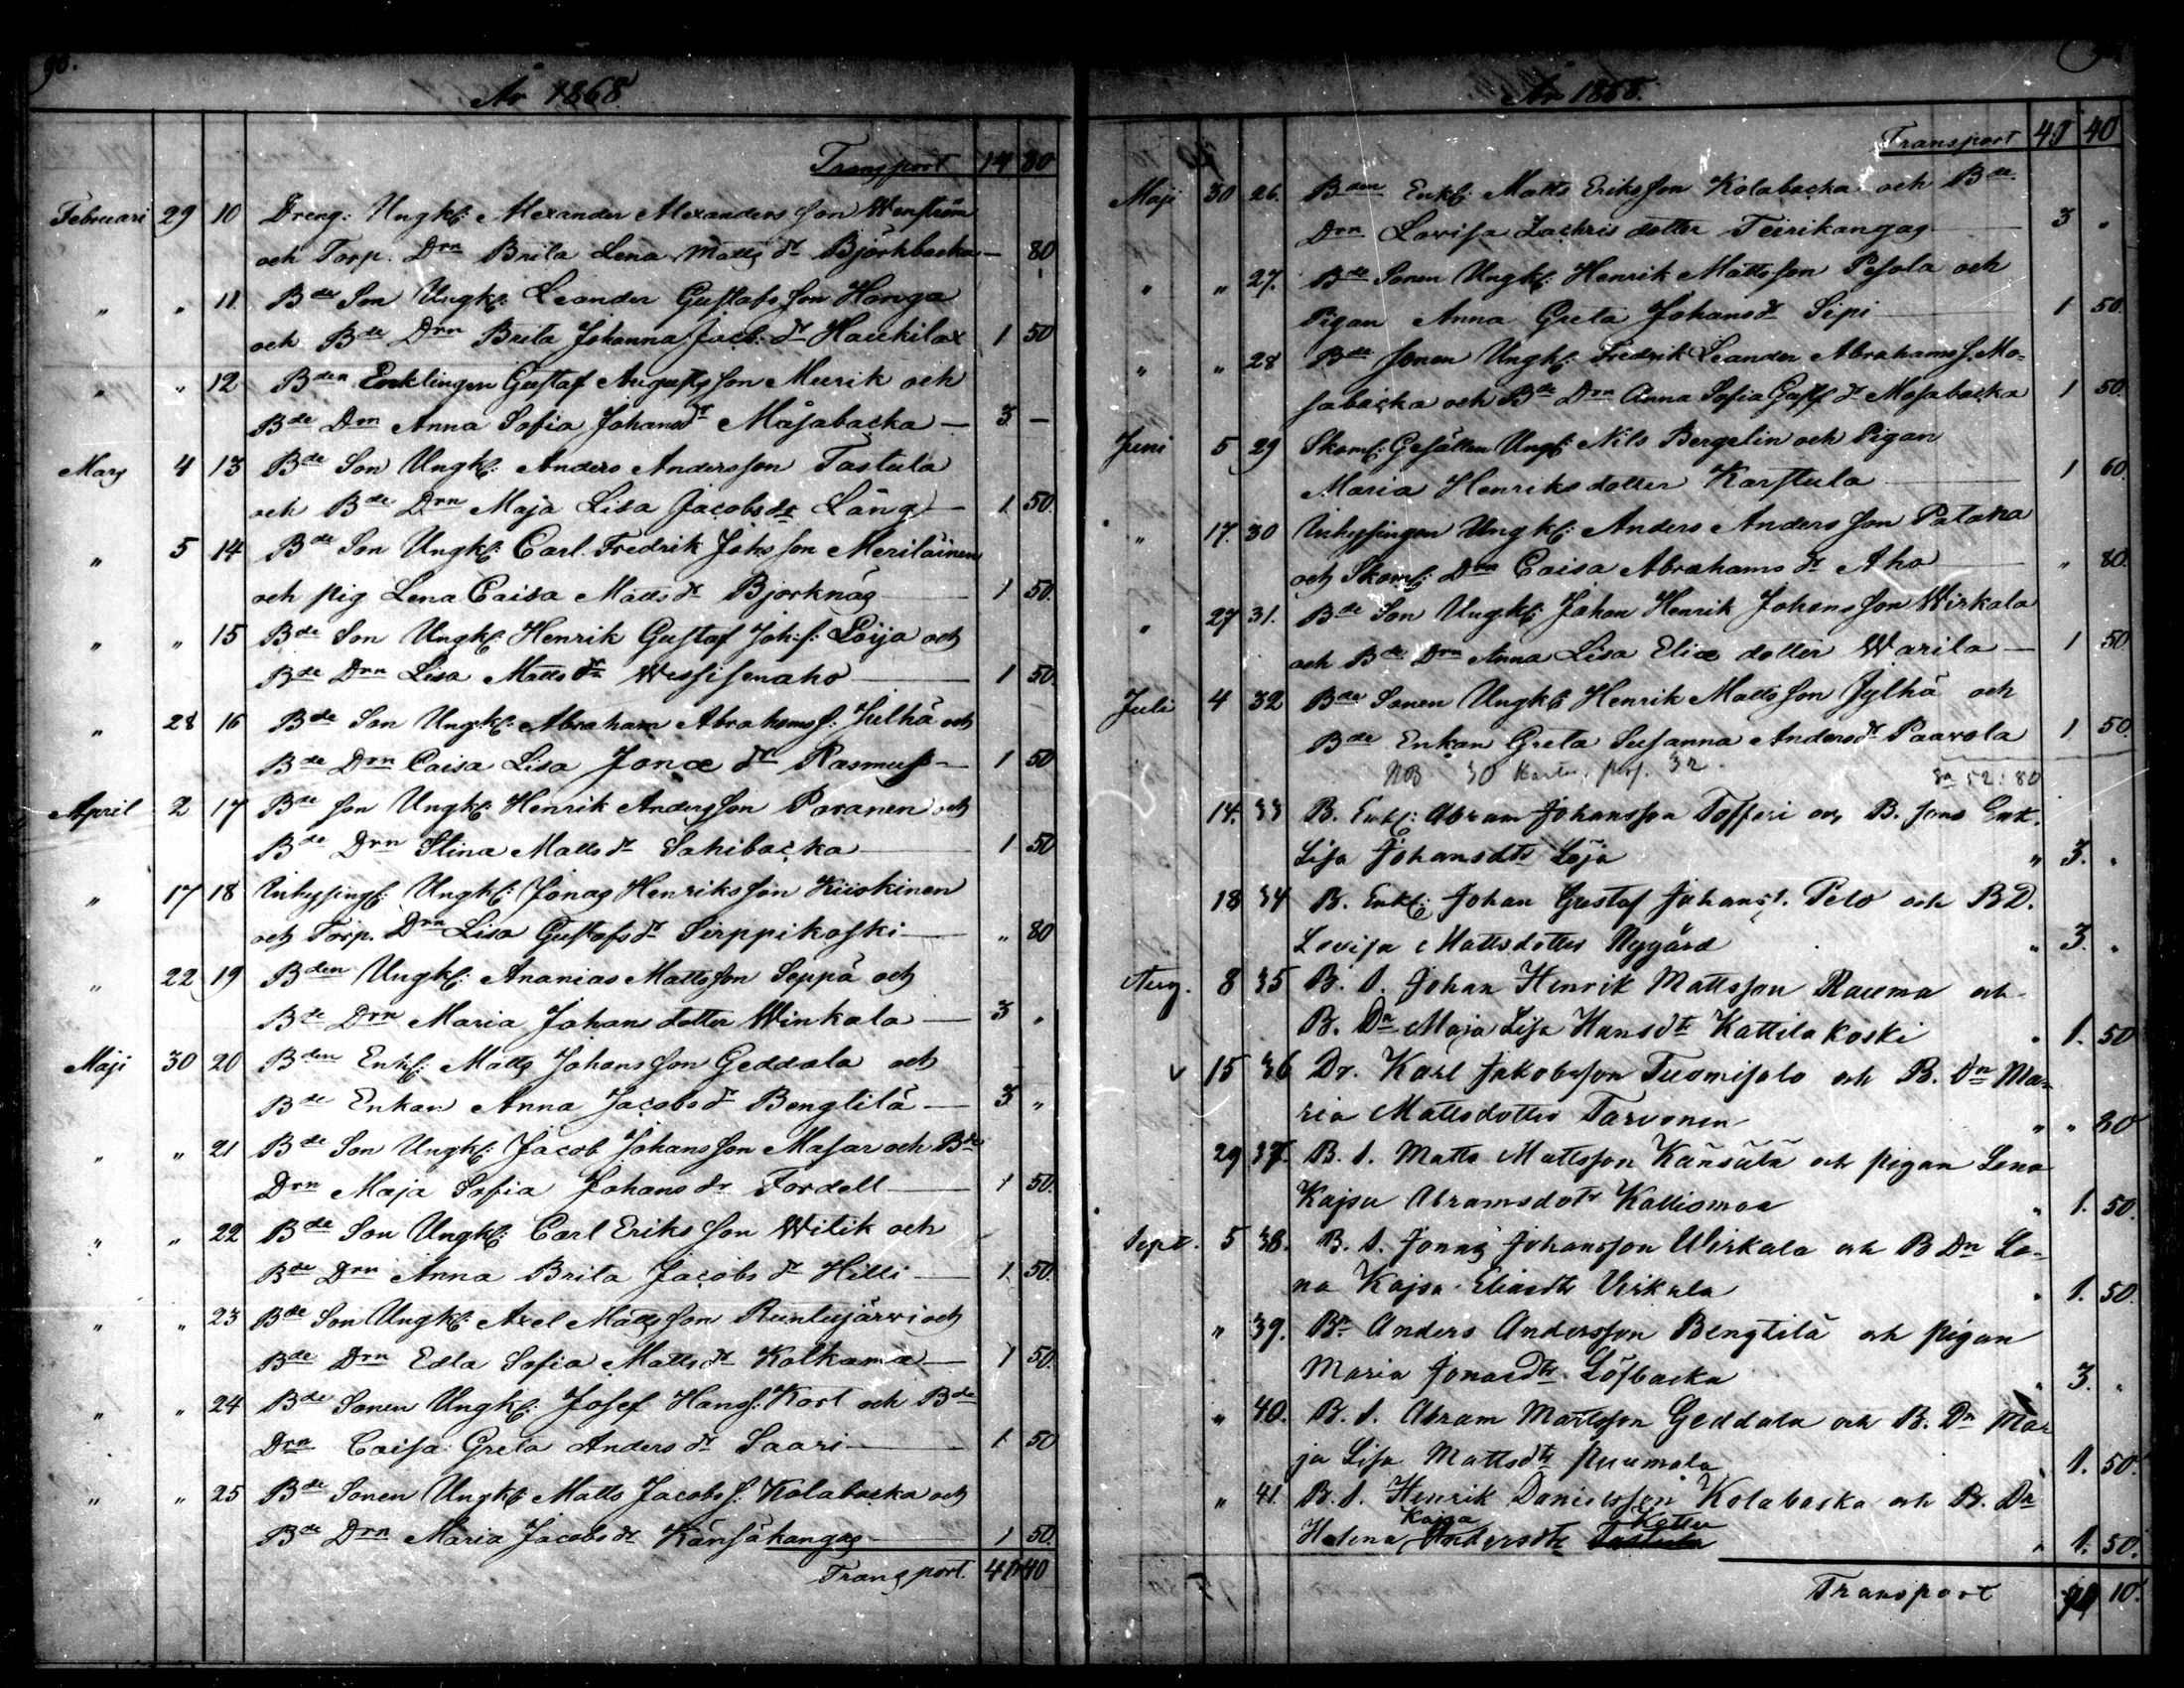 90.
År 1868.
Transport 14 80
Februari 29 10 Dreng: Ungk: Alexander Alexanders son Wenström
och Torp. Drn Brita Lena Matts dr Björkbacka — 80
" " 11. Bde Son Ungk: Leander Gustafs son Honga
och Bde Drn Brita Johanna Jacb: dr Hauhilax 1 50
" " 12 Bden Enklingen Gustaf Augusts son Meerik och
Bde Drn Anna Sofia Johans dr Måsabacka — 3 —
Mars 4 13 Bde Son Ungk: Anders Andersson Tastula
och Bde Drn Maja Lisa Jacobs dr Lång — 1 50.
" 5 14 Bde Son Ungk: Carl Fredrik Johs son Meriläinen
och pig Lena Caisa Matts dr Björknäs — 1 50.
" " 15 Bde Son Ungk: Henrik Gustaf Joh: s: Löija och
Bde Drn Lisa Matts dr Wessisenaho — 1 50.
" 28 16 Bde Son Ungk: Abraham Abrahams s: Julhä och
Bde Drn Caisa Lisa Jonæ dr Rasmus — 1 50
April 2 17 Bde son Ungk: Henrik Andersson Poranen och
Bde Drn Stina Matts dr Sahibacka — 1 50
" 17 18 Inhysing: Ungk: Jonas Henriksson Kiiskinen
och Torp. Drn Lisa Gustafs dr Sirppikoski — " 80
" 22 19 Bden Ungk: Ananias Mattsson Seppä och
Bde Drn Maria Johans dotter Winkala — 3 "
Maji 30 20 Bden Enkl: Matts Johansson Geddala och
Bde Enkan Anna Jacobs dr Bengtilä — 3 "
" " 21 Bde Son Ungk: Jacob Johansson Masar och Bde
Drn Maja Sofia Johans dr Fordell — 1 50.
" " 22 Bde Son Ungk: Carl Eriksson Witik och
Bde Drn Anna Brita Jacobs dr Hilli — 1. 50.
" " 23 Bde Son Ungk: Axel Mattsson Runtujärwi och
Bde Drn Edla Sofia Matts dr Kalkama — 1 50.
" " 24 Bde Sonen Ungk: Josef Hans s: Kort och Bde
Drn Caisa Greta Anders dr Saari — 1 50
" " 25 Bde Sonen Ungk: Matts Jacobs s: Kolabacka och
Bde Drn Maria Jacobs dr Känsäkangas — 1 50.
Transport. 41 40
År 1868.
Transport 41 40
Maji 30 26. Bden Enkl: Matts Eriksson Kolabacka och Bde
Drn Lovisa Zachris dotter Teirikangas — 3 "
" " 27. Bde Sonen Ungk: Henrik Mattsson Pesola och
Pigan Anna Greta Johans dr Sipi — 1 50.
" " 28 Bde sonen Ungk: Fredrik Leander Abrahams s. Mo-
sabacka och Bde Drn Anna Sofia Gustf dr Mosabacka 1 50
Juni 5 29 Skom: Gesällen Ungk: Nils Bergelin och Pigan
Maria Henriks dotter Karstula — 1 60.
" 17. 30 Inhysingen Ungk: Anders Andersson Patana
och Skom: Drn Caisa Abrahams dr Aho — " 80.
" 27 31. Bde Son Ungk: Johan Henrik Johansson Wirkala
och Bde Drn Anna Lisa Eliæ dotter Warila — 1 50
Juli 4 32 Bde Sonen Ungk: Henrik Mattsson Jylhä och
Bde Enkan Greta Susanna Anders dr Paavola 1 50.
NB 30 32 Sa 52: 80
14. 33 B. Enkl: Abram Johansson Tofferi och B. sons Enk.
Lisa Johansdtr Löja " 3. "
18 34 B. Enkl: Johan Gustaf Johans s. Pelo och B D.
Lovisa Mattsdotter Nygård " 3. "
Aug. 8 35 B. S. Johan Henrik Mattsson Rauma och
B. Dn Maja Lisa Hansdtr Kattilakoski " 1. 50
15 36 Dr. Karl Jakobsson Tuomisalo och B. Dn Ma-
ria Mattsdotter Tarvonen " " 80
29 37. B. S. Matts Mattsson Känsälä och pigan Lena
Kajsa Abramsdotr Kalliomaa " 1. 50.
Sept. 5 38. B. S. Jonas Johansson Wirkala och B Dn Le-
na Kajsa Eliasdtr Virkala " 1. 50.
" 39. Bn Anders Andersson Bengtilä och pigan
Maria Jonasdtr Löfbacka " 3. "
" 40. B. S. Abram Mattsson Geddala och B. Dn Ma-
ja Lisa Mattsdtr Puumala " 1. 50.
" 41. B. S. Henrik Danielsson Kolabacka och B. Dn
Kajsa Kotta
Helena Andersdtr Tastula " 1. 50.
Transport 10.